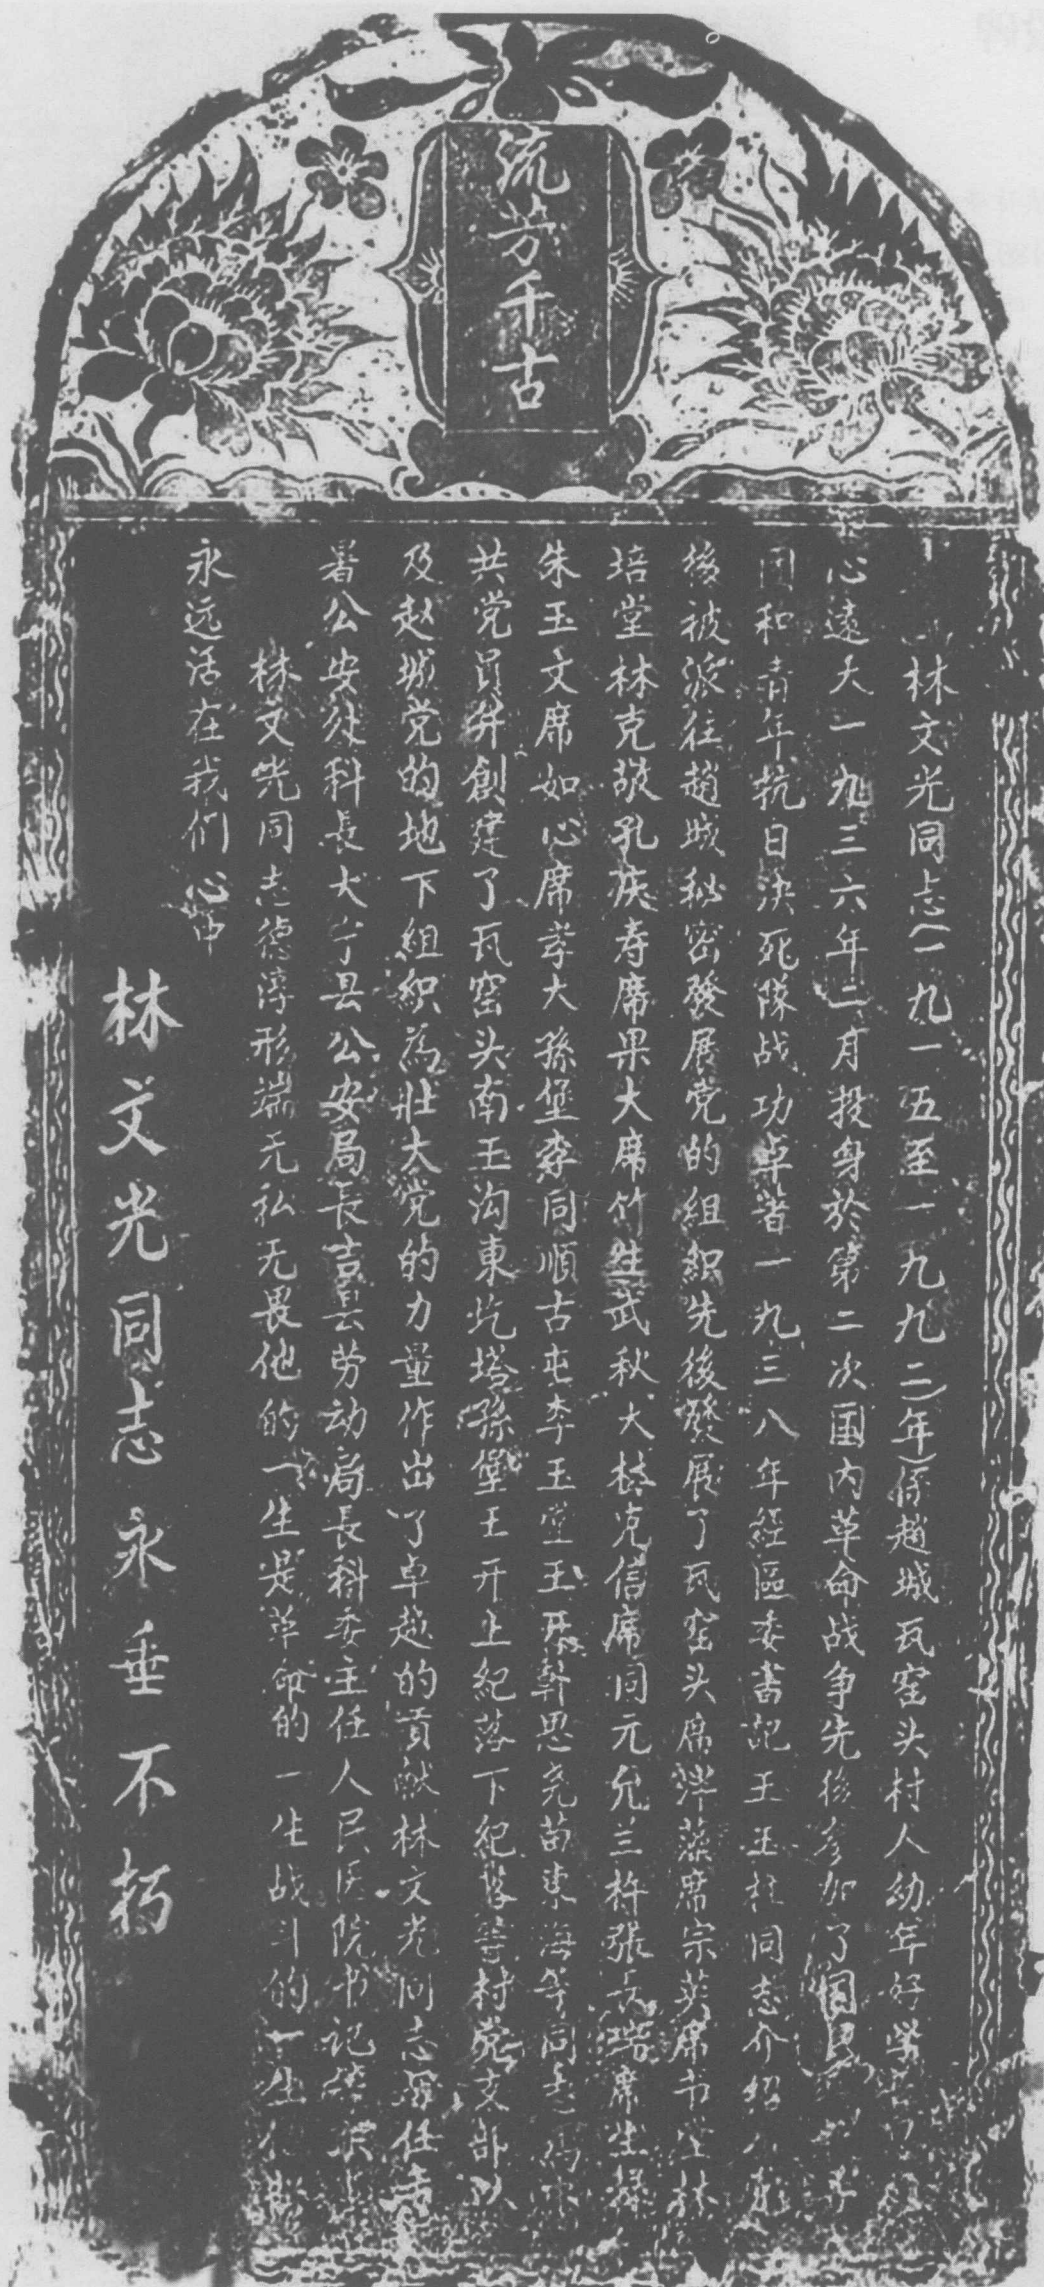 流芳千古
林文光同志(一九一五至一九九二年)係趙城瓦窑头村人幼年好學
心遠大一九三六年二月投身於第二次国内革命战争先後参加了
团和青年抗日决死隊战功卓著一九三八年经區委書記王玉柱同志介绍
後被派往趙城秘密發展党的组織先後發展了瓦窑头席泮藻席宗英席书堂林
培堂林克敬孔疾寿席果大席竹生武秋大林克信席同元允兰柞張
席生禄
朱玉文席如心席孝大孫堡李同順古屯李玉堂王
幹思尧苗東海等同志爲中
共党員并創建了瓦窑头南王沟東圪塔孫堡王开上紀落下紀落等村党支部以
及赵城党的地下组织為壮大党的力量作出了卓越的貢献林文光同志歷任吉
县公安处科長大宁县公安局長吉县劳动局長科委主任人民医院书记
林文光同志德淳形端无私无畏他的一生是革命的一生战斗的一生
永远活在我们心中
林文光同志永垂不朽